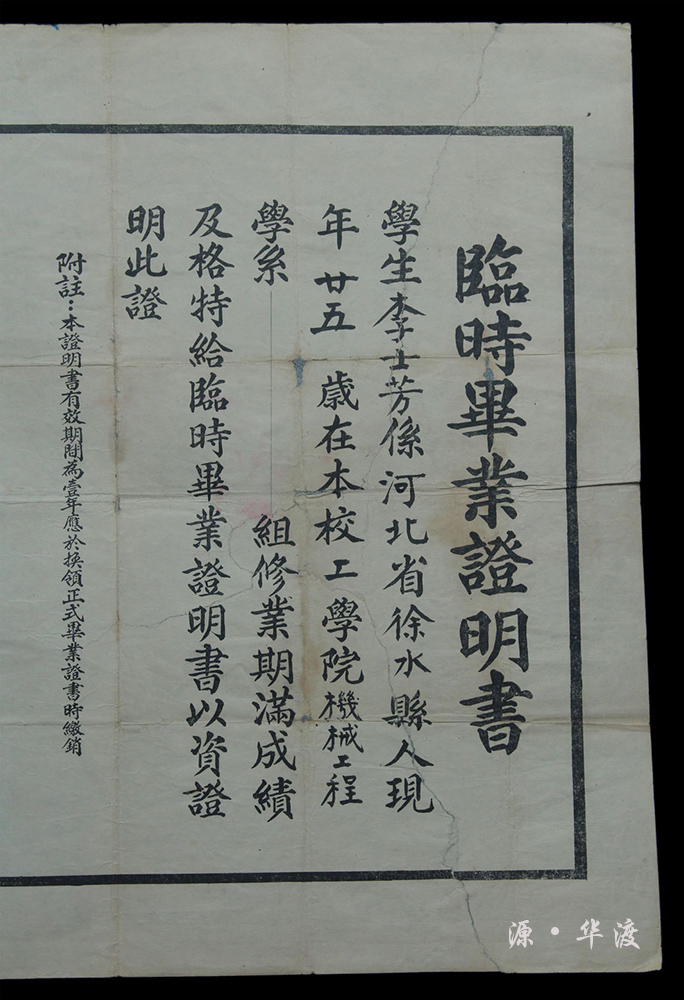 臨時畢業證明書
學生李士芳係河北省徐水縣人現
年廿五歲在本校工學院機械工程
學系組修業期滿成績
及格特給臨時畢業證明書以資證
明此證
附註：本證明書有效期間為壹年應於換領正式畢業證書時繳銷
源·华渡